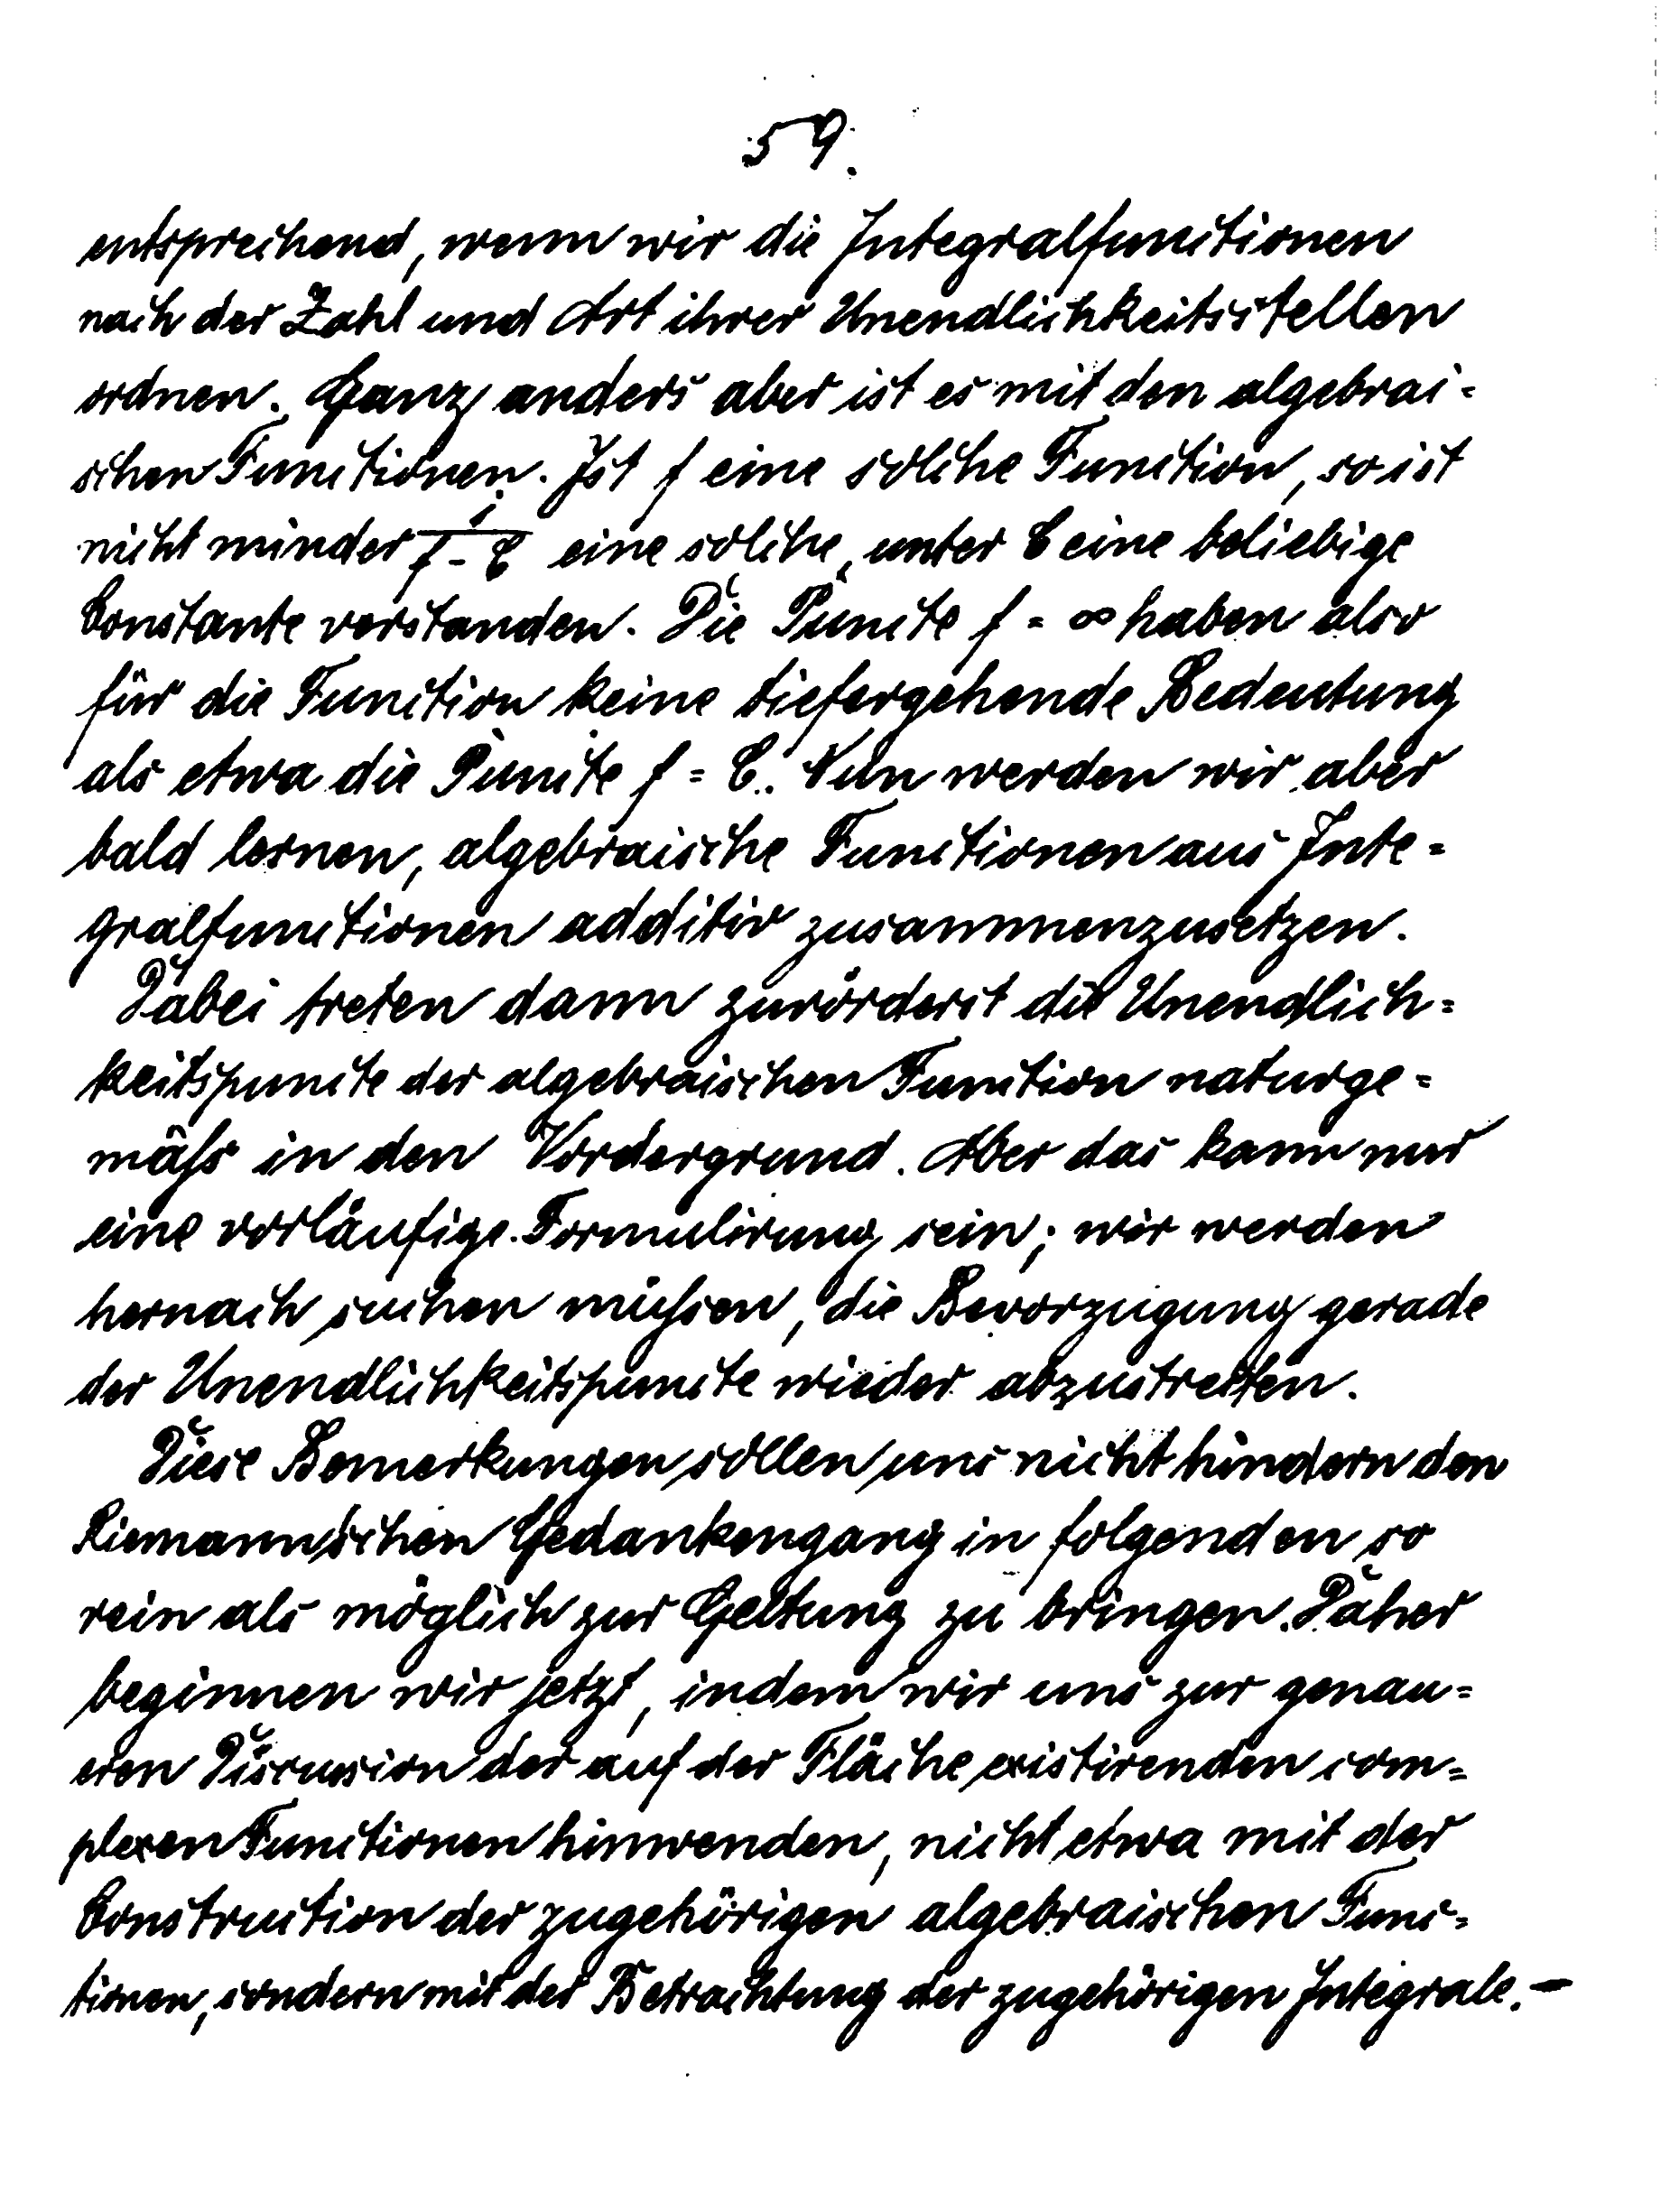 59.
entsprechend, wenn wir die Integralfunctionen
nach der Zahl und Art ihrer Unendlichkeitsstellen
ordnen. Ganz anders aber ist es mit den algebrai-
schen Functionen. Ist f eine solche Function, so ist
nicht minder 1/(f-C) eine solche, unter C eine beliebige
Constante verstanden. Die Puncte f = ∞ haben also
für die Function keine tiefergehende Bedeutung
als etwa die Puncte f = C. Nun werden wir aber
bald lernen, algebraische Functionen aus Inte-
gralfunctionen additiv zusammenzusetzen.
Dabei treten dann zuvörderst die Unendlich-
keitspuncte der algebraischen Function naturge-
mäß in den Vordergrund. Aber das kann nur
eine vorläufige Formulirung sein; wir werden
hernach suchen müßen, die Bevorzugung gerade
der Unendlichkeitspuncte wieder abzustreifen.
Diese Bemerkungen sollen uns nicht hindern den
Riemann'schen Gedankengang in folgenden so
rein als möglich zur Geltung zu bringen. Daher
beginnen wir jetzt, indem wir uns zur genau-
eren Discussion der auf der Fläche existirenden com-
plexen Functionen hinwenden, nicht etwa mit der
Construction der zugehörigen algebraischen Func-
tionen, sondern mit der Betrachtung der zugehörigen Integrale. —